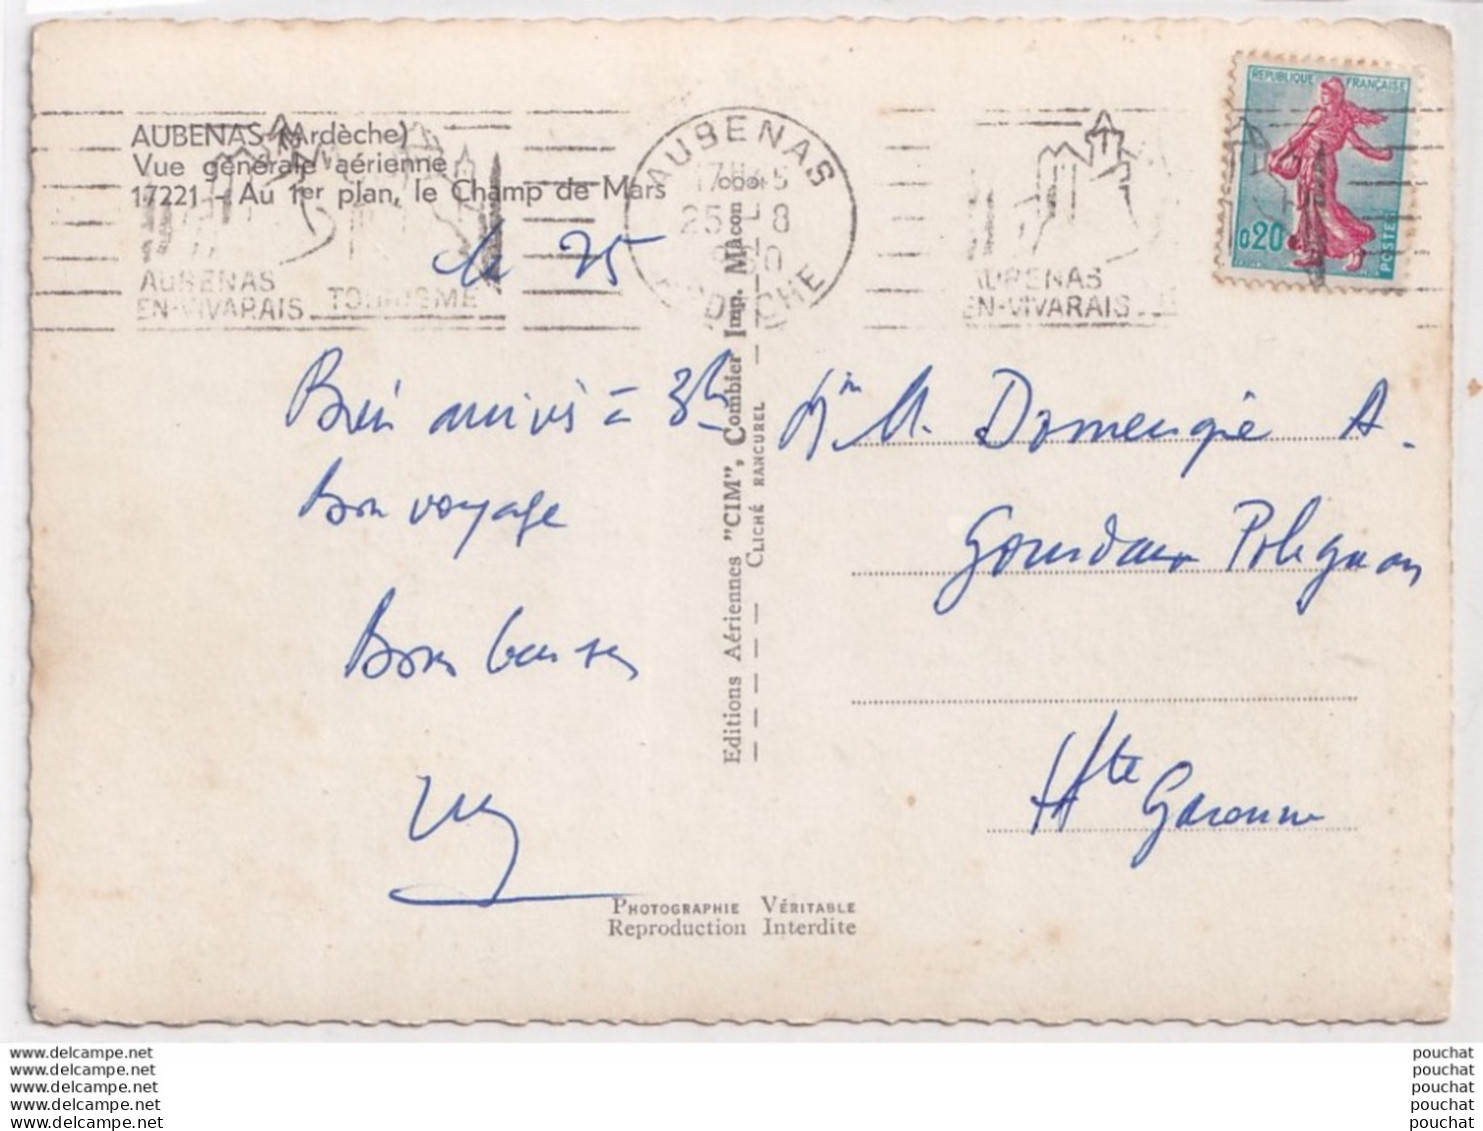 AUBENAS (Ardèche)
Vue générale aérienne
17221 - Au 1er plan, le Champ de Mars
le 25
AUBENAS
EN-VIVARAIS TOURISME
AUBENAS
17H
25 - 8
ARDECHE
AUBENAS
EN-VIVARAIS
REPUBLIQUE FRANÇAISE
0,20
POSTES
Bien arrivés à 3h
Bon voyage
Bons baisers
Editions Aériennes "CIM", Combier Imp. Mâcon
CLICHÉ RANCUREL
M. Domengie A.
Gourdan Polignan
Hte Garonne
PHOTOGRAPHIE VÉRITABLE
Reproduction Interdite
www.delcampe.net
www.delcampe.net
www.delcampe.net
www.delcampe.net
www.delcampe.net
pouchat
pouchat
pouchat
pouchat
pouchat